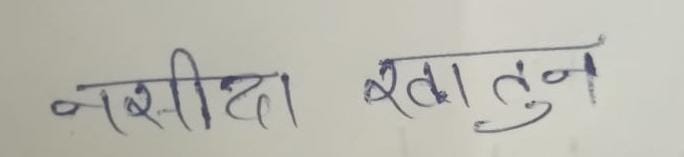 नसीदा खातुन